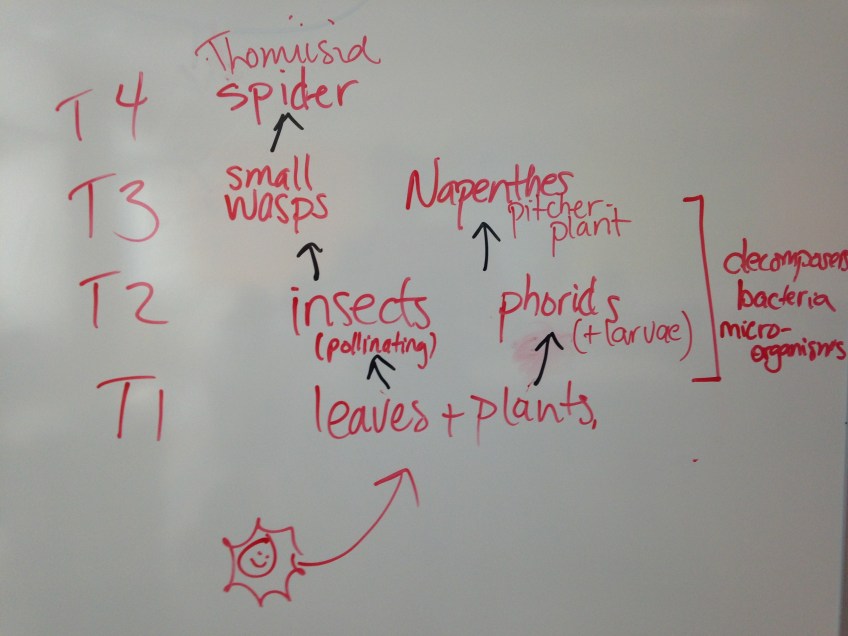 T4 Thomisid
spider
T3 small
wasps
Napenthes
pitcher-
plant
T2 insects
(pollinating)
phorids
(+larvae)
decomposers
bacteria
micro-
organisms
T1 leaves + plants.